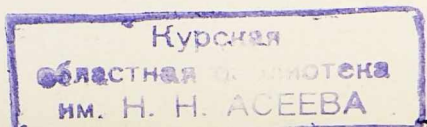 Курская
областная библиотека
им. Н. Н. АСЕЕВА